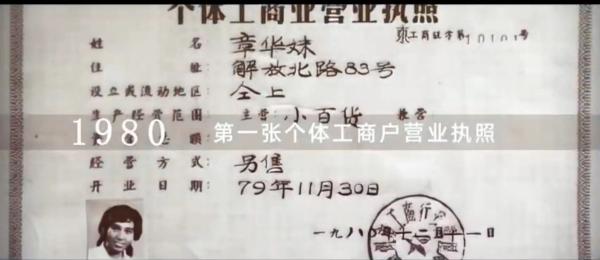 个体工商业营业执照
东工商证字第10101号
姓名 章华妹
住址 解放北路83号
设立或流动地区: 仝上
生产经营范围: 主营: 小百货 兼营
1980 第一张个体工商户营业执照
经营方式: 另售
开业日期: 79年11月30日
一九八〇年十二月十一日
工商行